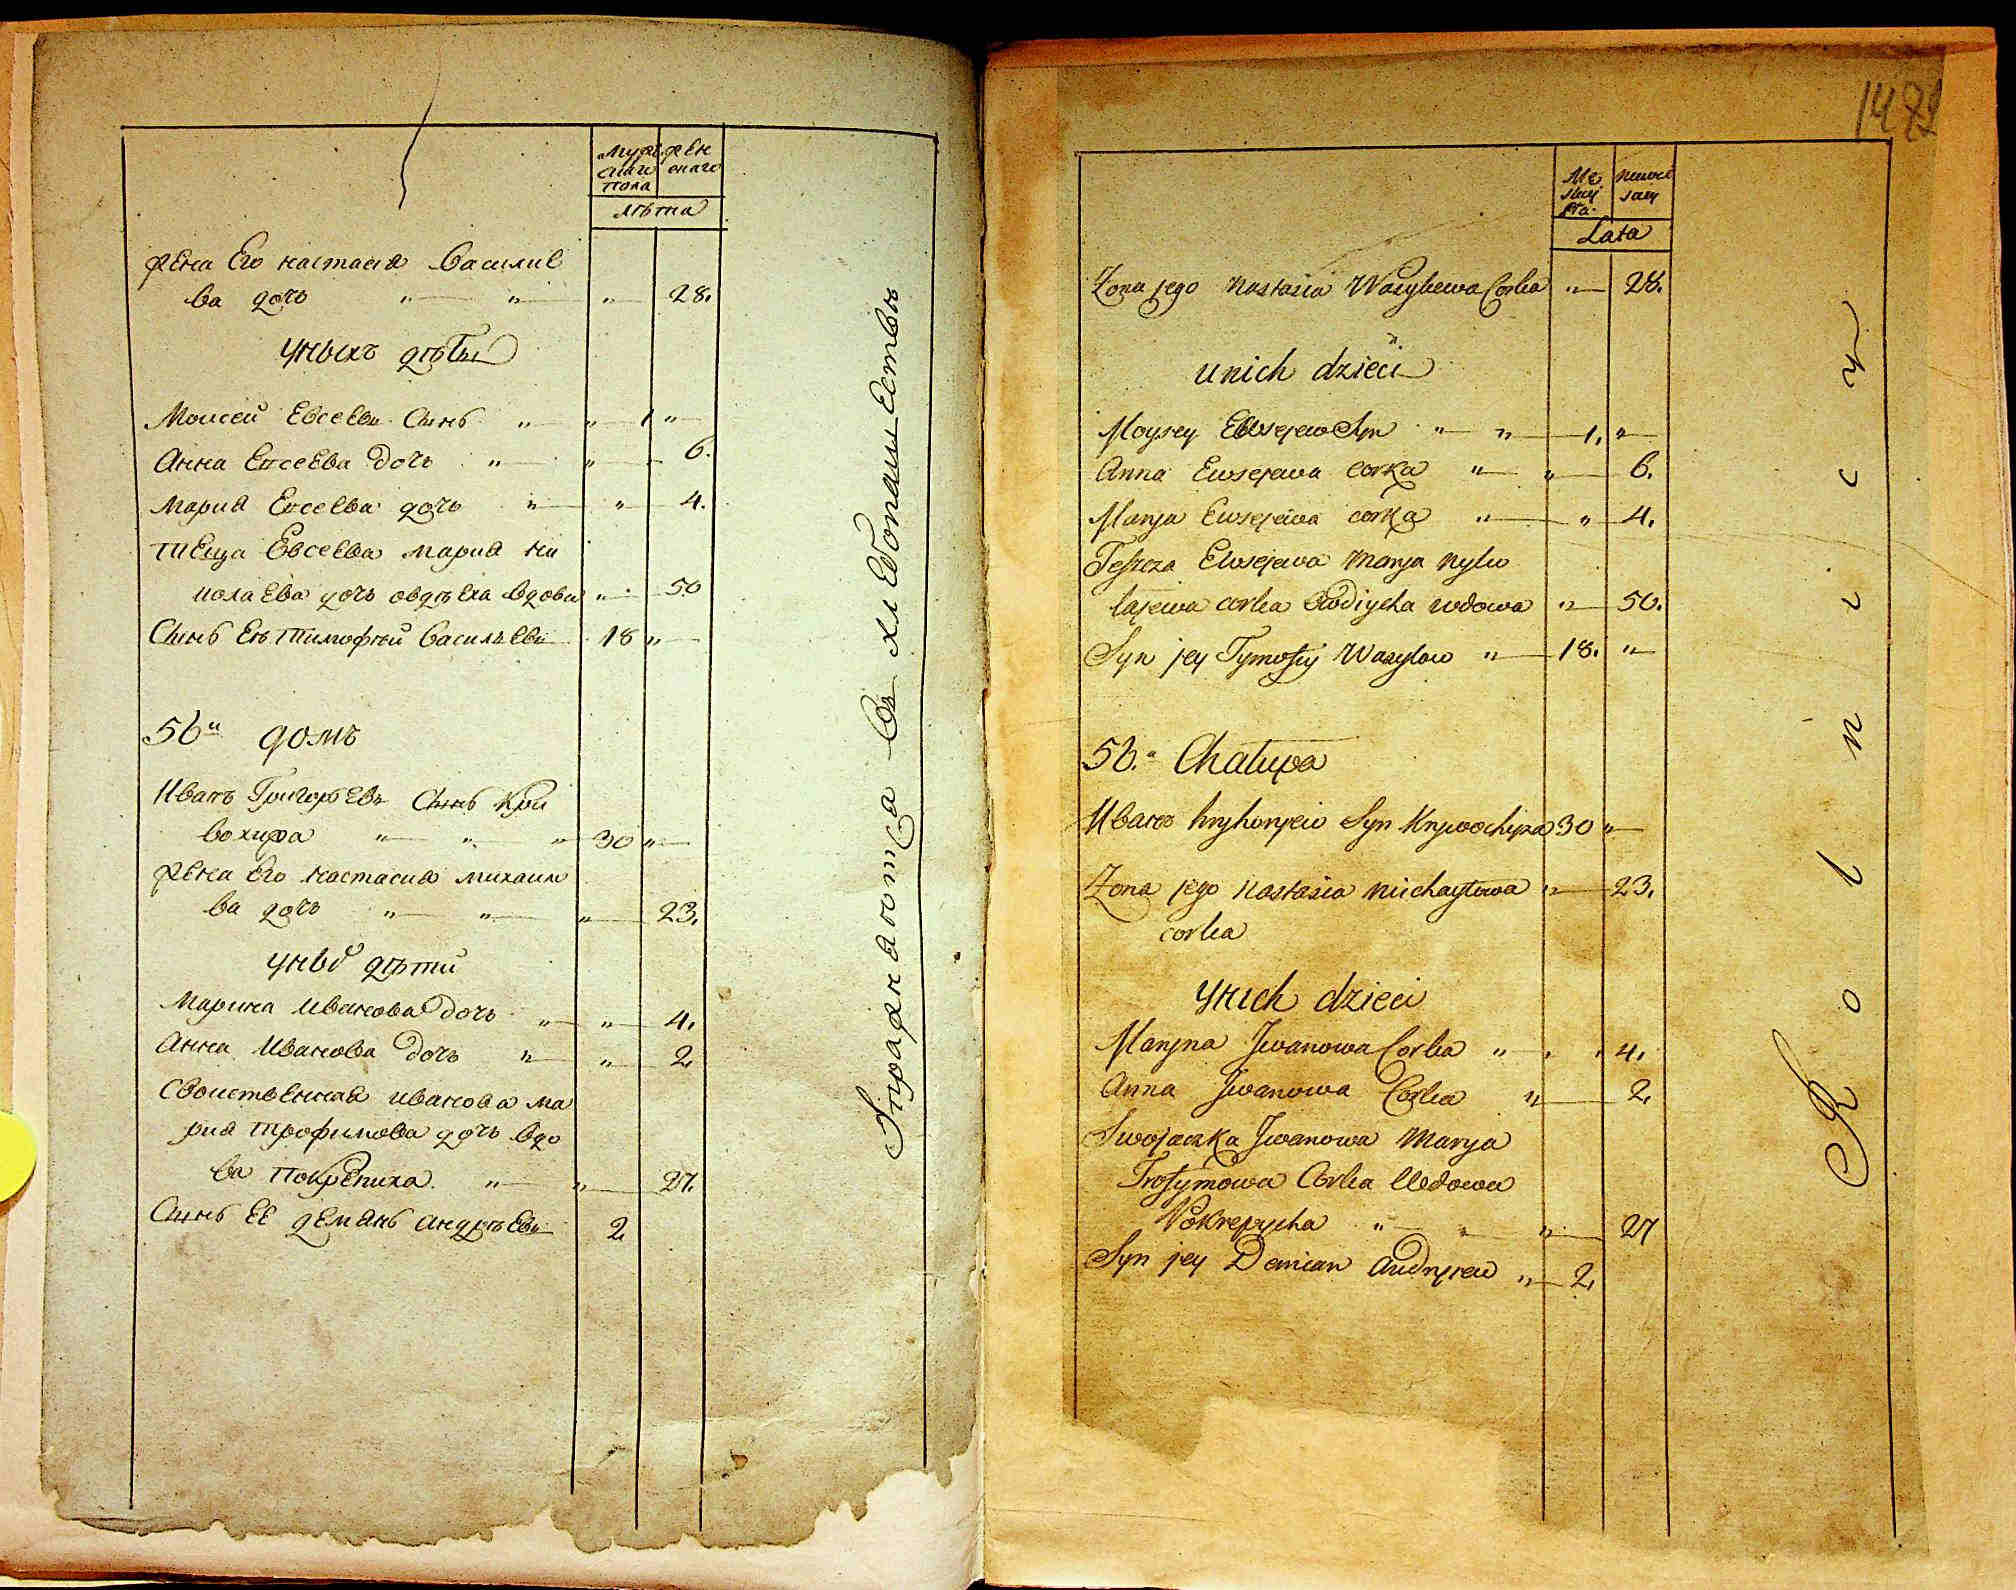 Мужскаго пола
женскаго
лѣта
жена Его настасия василие
ва дочь " " " 28.
у ныхъ дѣти
Моисей Евсеевъ Сынъ " " 1 "
Анна Евсеева дочь " " 6.
мария Евсеева дочь " " 4.
тЕща Евсеева мария ни
колаЕва дочь овдѣЕха вдова " 50
Сынъ Еѣ тимофѣй васильЕвъ 18 "
56й домъ
Иванъ ГригорьЕвъ Сынъ Кри
вохижа " " " 30 "
жена Его настасия михаило
ва дочь " " " 23.
у ныхъ дѣти
Марина Иванова дочь " " 4.
Анна Иванова дочь " " 2.
СвоистьЕнная иванова ма
рия трофимова дочь вдо
ва покрЕпиха " " 27.
Сынъ ЕЕ дЕмянъ андрѣЕвъ 2
Упражняютца въ хлѣбопашЕствѣ
1481
Męskiej płci
niewiesciej
Lata
Zona jego Nastasia Wasylewa Corka " 28.
u nich dzieci
Moysey Ewsejew Syn " " 1. "
Anna Ewsejewa corka " " 6.
Marya Ewsejewa corka " " 4.
Teszcza Ewsejewa Marya Nyko
łajewa corka Owdiycha wdowa " 50.
Syn jey Tymofiy Wasylow " 18. "
56.a Chałupa
Иванъ hryhoryew Syn Krywochyza 30 "
Zona jego Nastasia Michayłowa " 23.
corka
У nich dzieci
Maryna Jwanowa Corka " " " 4.
Anna Jwanowa Corka " 2.
Swojaczka Jwanowa Marya
Trofymowa Corka Wdowa
Pokrepycha " " " 27
Syn jey Demian Andryew " 2.
Rolnicy